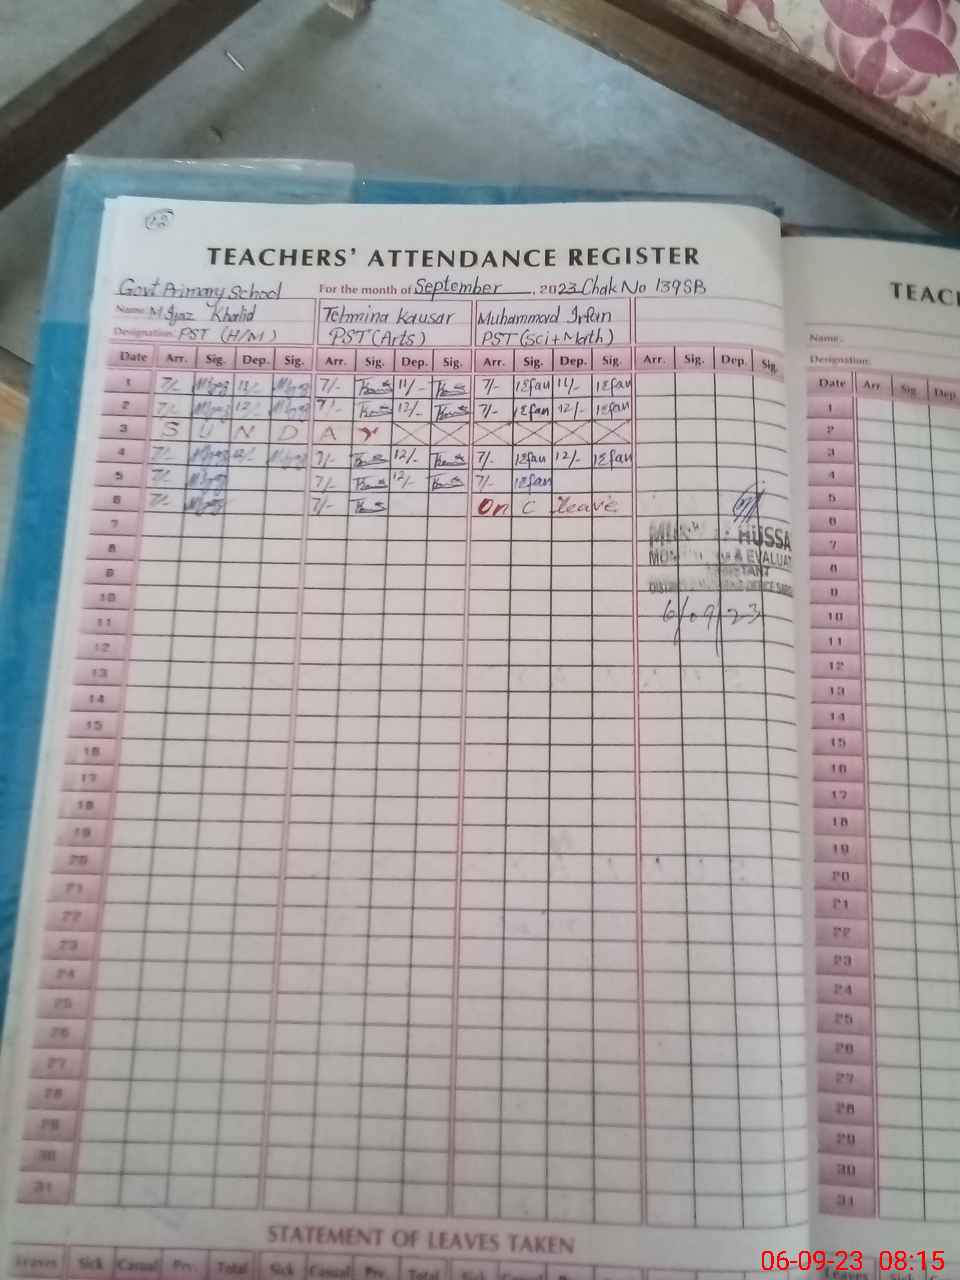 22
TEACHERS' ATTENDANCE REGISTER
Govt Primary School For the month of September, 2023 Chak No 139SB
Name: M. Ijaz Khalid Tehmina Kausar Muhammad Irfan
Designation: PST (H/M) PST (Arts) PST (Sci + Math)
Date Arr. Sig. Dep. Sig. Arr. Sig. Dep. Sig. Arr. Sig. Dep. Sig. Arr. Sig. Dep. Sig.
1 7/- 12/- 7/- 11/- 7/- Irfan 11/- Irfan
2 7/- 12/- 7/- 12/- 7/- Irfan 12/- Irfan
3 S U N D A Y
4 7/- 12/- 7/- 12/- 7/- Irfan 12/- Irfan
5 7/- 7/- 12/- 7/- Irfan
6 7/- 7/- On C leave
7
8
9
10
11
12
13
14
15
16
17
18
19
20
21
22
23
24
25
26
27
28
29
30
31
HUSSA
& EVALUAT
6/09/23
STATEMENT OF LEAVES TAKEN
Leaves Sick Casual Prv. Total Sick Casual Prv. Total Sick Casual
TEACH
Name:
Designation:
Date Arr Sig. Dep.
1
2
3
4
5
6
7
8
9
10
11
12
13
14
15
16
17
18
19
20
21
22
23
24
25
26
27
28
29
30
31
Leaves
06-09-23 08:15